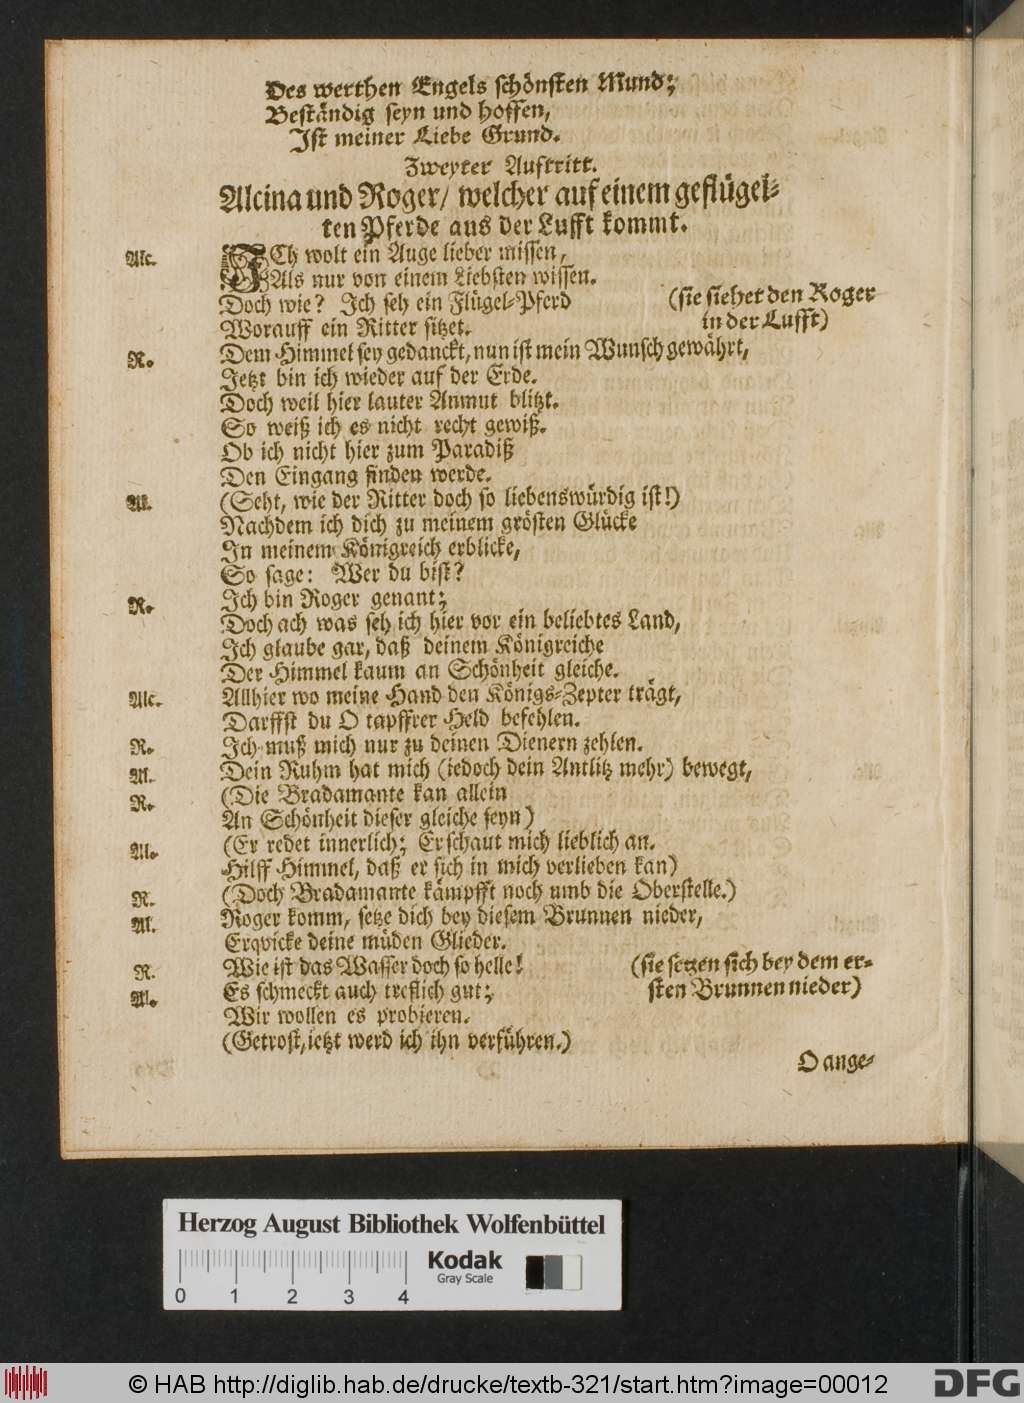 Des werthen Engels schönsten Mund;
Beständig seyn und hoffen,
Ist meiner Liebe Grund.
Zweyter Auftritt.
Alcina und Roger/ welcher auf einem geflügel-
ten Pferde aus der Lufft kommt.
Alc. ICh wolt ein Auge lieber missen,
Als nur von einem Liebsten wissen.
Doch wie? Ich seh ein Flügel-Pferd (sie siehet den Roger
Worauff ein Ritter sitzet. in der Lufft)
R. Dem Himmel sey gedanckt, nun ist mein Wunsch gewährt,
Jetzt bin ich wieder auf der Erde.
Doch weil hier lauter Anmut blitzt.
So weiß ich es nicht recht gewiß.
Ob ich nicht hier zum Paradiß
Den Eingang finden werde.
Al. (Seht, wie der Ritter doch so liebenswürdig ist!)
Nachdem ich dich zu meinem grösten Glücke
In meinem Königreich erblicke,
So sage: Wer du bist?
R. Ich bin Roger genant;
Doch ach was seh ich hier vor ein beliebtes Land,
Ich glaube gar, daß deinem Königreiche
Der Himmel kaum an Schönheit gleiche.
Alc. Allhier wo meine Hand den Königs-Zepter trägt,
Darffst du O tapffrer Held befehlen.
R. Ich muß mich nur zu deinen Dienern zehlen.
Al. Dein Ruhm hat mich (iedoch dein Antlitz mehr) bewegt,
R. (Die Bradamante kan allein
An Schönheit dieser gleiche seyn)
Al. (Er redet innerlich; Er schaut mich lieblich an.
Hilff Himmel, daß er sich in mich verlieben kan)
R. (Doch Bradamante kämpfft noch umb die Oberstelle.)
Al. Roger komm, setze dich bey diesem Brunnen nieder,
Erqvicke deine müden Glieder.
R. Wie ist das Wasser doch so helle! (sie setzen sich bey dem er-
Al. Es schmeckt auch treflich gut; sten Brunnen nieder)
Wir wollen es probieren.
(Getrost, ietzt werd ich ihn verführen.)
O ange-
Herzog August Bibliothek Wolfenbüttel
Kodak
Gray Scale
0 1 2 3 4
© HAB http://diglib.hab.de/drucke/textb-321/start.htm?image=00012
DFG